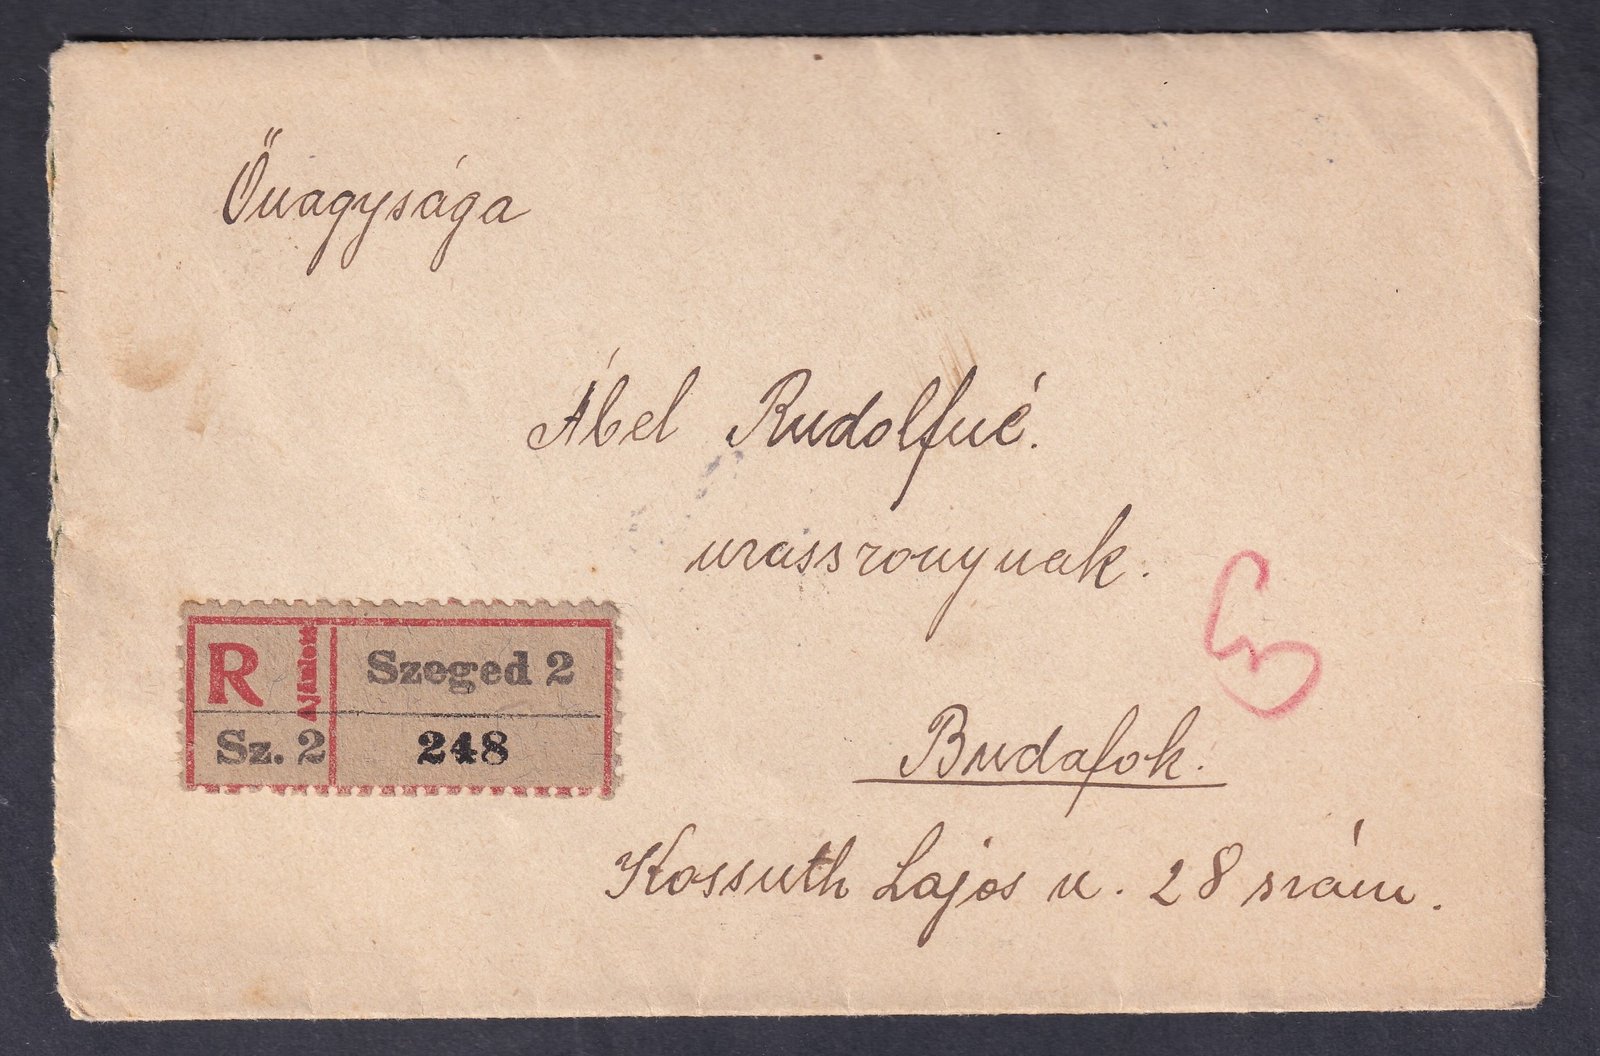 Őnagysága
Ábel Rudolfné.
urasszonynak.
R Ajánlott Szeged 2
Sz. 2 248
Budafok.
Kossuth Lajos u. 28 szám.